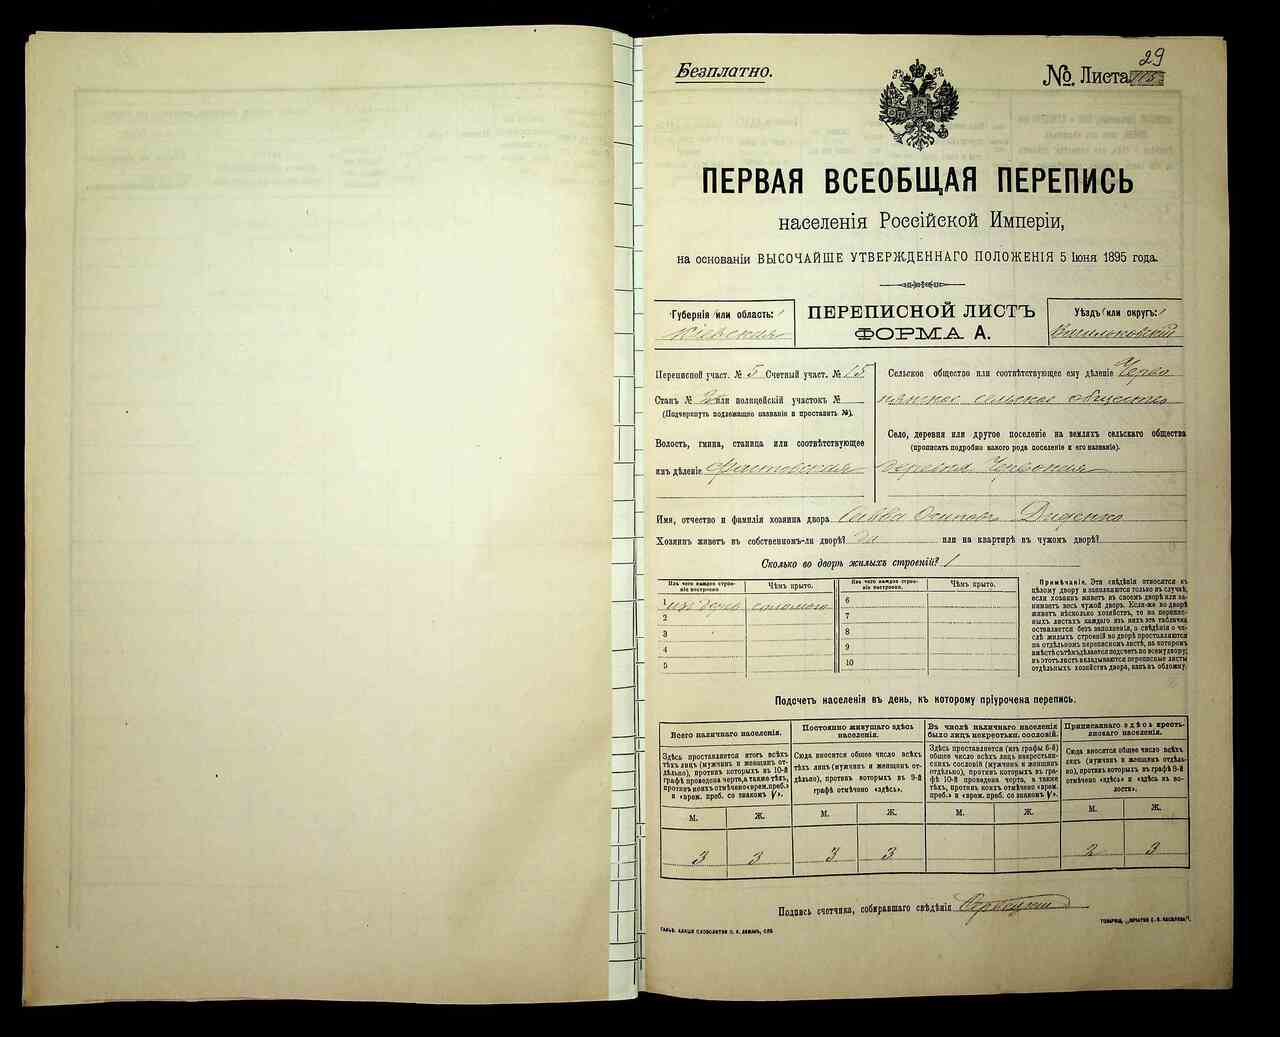 29
Безплатно.
№. Листа 115
ПЕРВАЯ ВСЕОБЩАЯ ПЕРЕПИСЬ
населенія Россійской Имперіи,
на основаніи ВЫСОЧАЙШЕ УТВЕРЖДЕННАГО ПОЛОЖЕНІЯ 5 Іюня 1895 года.
Губернія или область:
Кіевская
ПЕРЕПИСНОЙ ЛИСТЪ
ФОРМА А.
Уѣздъ или округъ:
Васильковскій
Переписной участ. № 5 Счетный участ. № 15
Станъ № или полицейскій участокъ №
(Подчеркнуть подлежащее названіе и проставить №).
Волость, гмина, станица или соотвѣтствующее
имъ дѣленіе Фастовская
Сельское общество или соотвѣтствующее ему дѣленіе Черво
нянское сельское общество
Село, деревня или другое поселеніе на земляхъ сельскаго общества
(прописать подробно какого рода поселеніе и его названіе).
деревня Червоная
Имя, отчество и фамилія хозяина двора Савва Осиповъ Диденко
Хозяинъ живетъ въ собственномъ-ли дворѣ? да или на квартирѣ въ чужомъ дворѣ?
Сколько во дворѣ жилыхъ строеній? 1
Изъ чего каждое строеніе построено
Чѣмъ крыто.
Изъ чего каждое строеніе построено.
Чѣмъ крыто.
1 изъ дерев соломою
2
3
4
5
6
7
8
9
10
Примѣчаніе. Эти свѣдѣнія относятся къ
цѣлому двору и заполняются только въ случаѣ,
если хозяинъ живетъ въ своемъ дворѣ или за-
нимаетъ весь чужой дворъ. Если-же во дворѣ
живетъ нѣсколько хозяйствъ, то на перепис-
ныхъ листахъ каждаго изъ нихъ эта табличка
оставляется безъ заполненія, а свѣдѣнія о чи-
слѣ жилыхъ строеній во дворѣ проставляются
на отдѣльномъ переписномъ листѣ, на которомъ
вмѣстѣ съ тѣмъ дѣлается подсчетъ по всему двору;
въ этотъ листъ вкладываются переписные листы
отдѣльныхъ хозяйствъ двора, какъ въ обложку.
Подсчетъ населенія въ день, къ которому пріурочена перепись.
Всего наличнаго населенія.
Здѣсь проставляется итогъ всѣхъ
тѣхъ лицъ (мужчинъ и женщинъ от-
дѣльно), противъ которыхъ въ 10-й
графѣ проведена черта, а также тѣхъ,
противъ коихъ отмѣчено «врем. преб.»
и «врем. преб. со знакомъ V».
Постоянно живущаго здѣсь
населенія.
Сюда вносится общее число всѣхъ
тѣхъ лицъ (мужчинъ и женщинъ от-
дѣльно), противъ которыхъ въ 9-й
графѣ отмѣчено «здѣсь».
Въ числѣ наличнаго населенія
было лицъ некрестьян. сословій.
Здѣсь проставляется (изъ графы 6-й)
общее число всѣхъ лицъ некрестьян-
скихъ сословій (мужчинъ и женщинъ
отдѣльно), противъ которыхъ въ гра-
фѣ 10-й проведена черта, а также
тѣхъ, противъ коихъ отмѣчено «врем.
преб.» и «врем. преб. со знакомъ V».
Приписаннаго здѣсь кресть-
янскаго населенія.
Сюда вносится общее число всѣхъ
лицъ (мужчинъ и женщинъ отдѣль-
но), противъ которыхъ въ графѣ 8-й
отмѣчено «здѣсь» и «здѣсь въ во-
лости».
М. Ж. М. Ж. М. Ж. М. Ж.
3 3 3 3 2 3
Подпись счетчика, собиравшаго свѣдѣнія